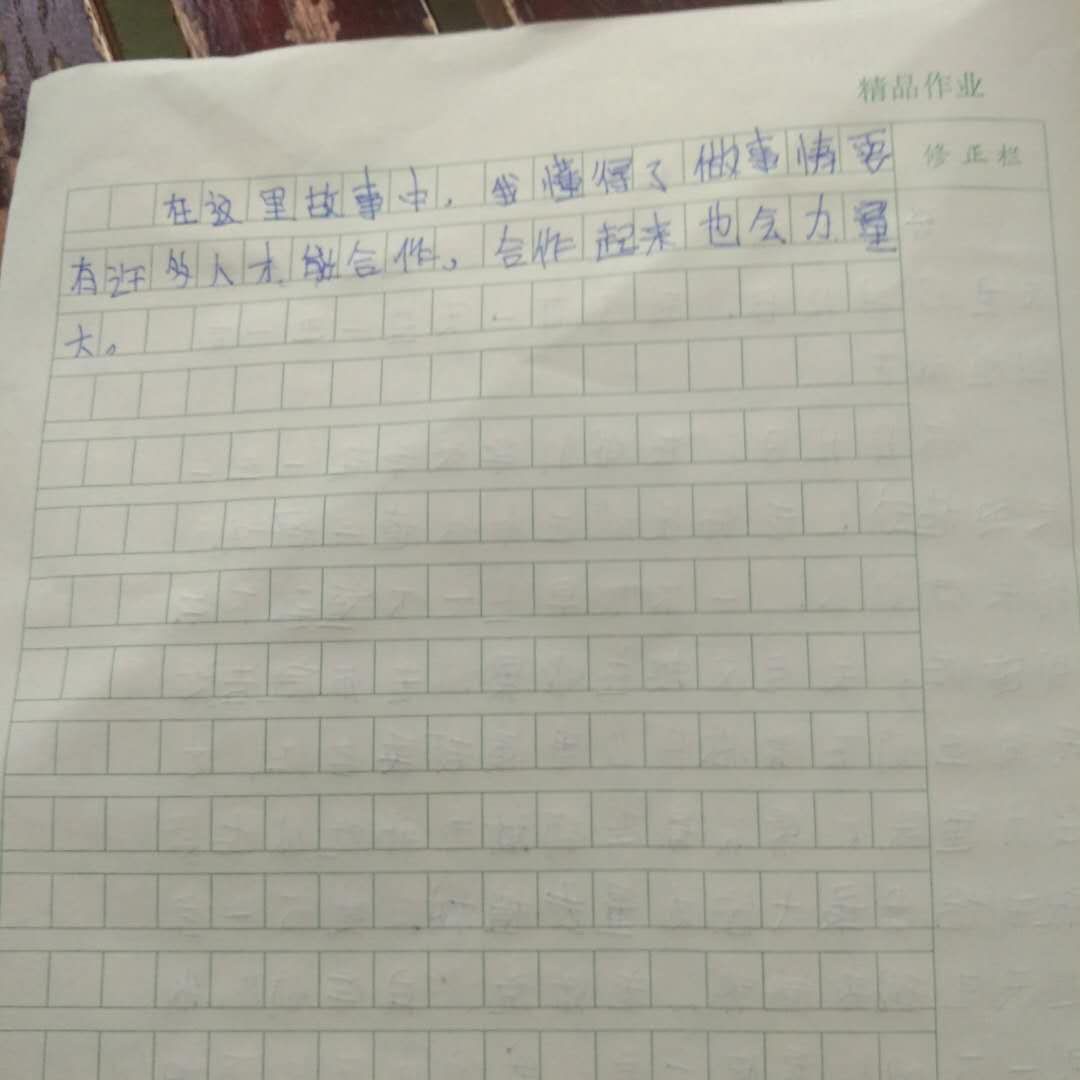 精品作业
修正栏
在这里故事中，我懂得了做事情要
有许多人才能合作，合作起来也会力量
大。